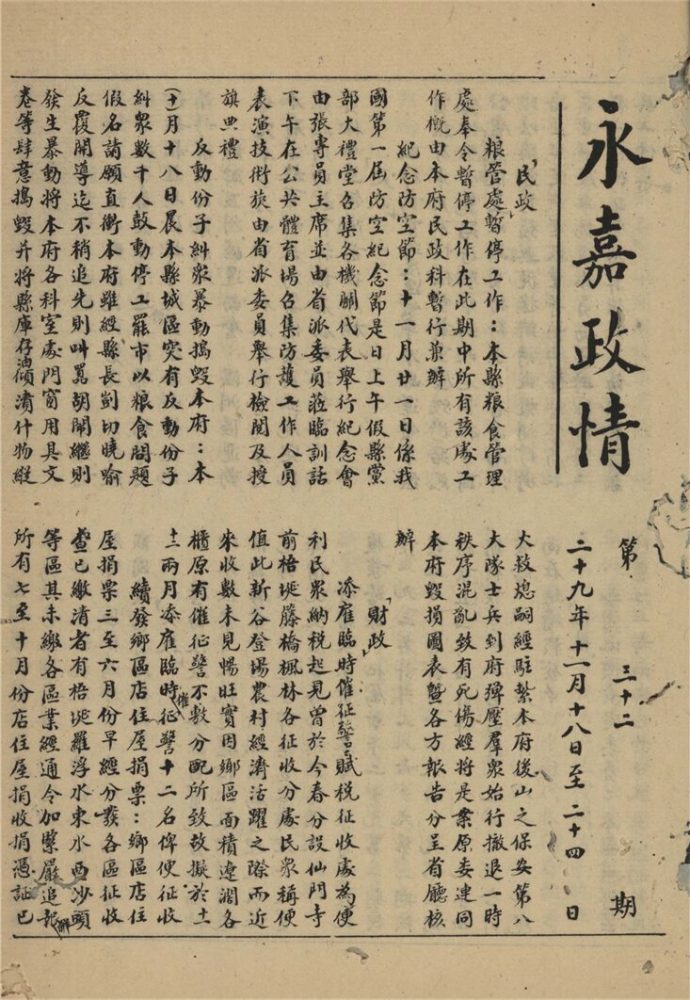 永嘉政情
第三十二期
二十九年十一月十八日至二十四日
民政
粮管處暫停工作：本縣粮食管理
處奉令暫停工作在此期中所有該處工
作概由本府民政科暫行兼辦
紀念防空節：十一月廿一日係我
國第一屆防空紀念節是日上午假縣黨
部大禮堂召集各機關代表舉行紀念會
由張專員主席並由省派委員蒞臨訓話
下午在公共體育場召集防護工作人員
表演技術旋由省派委員舉行檢閱及授
旗典禮
反動份子糾衆暴動搗毀本府：本
(十一)月十八日晨本縣城區突有反動份子
糾衆數千人鼓動停工罷市以粮食問題
假名請願直衝本府雖經縣長剴切曉喻
反覆開導迄不稍退先則叫囂胡鬧繼則
發生暴動將本府各科室處門窗用具文
卷等肆意搗毀并將縣庫存油傾潰什物縱
火救熄嗣經駐紮本府後山之保安第八
大隊士兵到府彈壓羣衆始行撤退一時
秩序混亂致有死傷經將是案原委連同
本府毀損圖表暨各方報告分呈省廳核
辦
財政
添雇臨時催征警：賦稅征收處為便
利民衆納稅起見曾於今春分設仙門寺
前梧埏藤橋楓林各征收分處民衆稱便
值此新谷登場農村經濟活躍之際而近
來收數未見暢旺實因鄉區面積遼濶各
櫃原有催征警不敷分配所致故擬於十一
十二兩月添雇臨時催征警十二名俾便征收
續發鄉區店住屋捐票：鄉區店住
屋捐票三至六月份早經分發各區征收
查已繳清者有梧埏羅浮水東水西沙頭
等區其未繳各區業經通令加緊嚴追報解
所有七至十月份店住屋捐收捐憑証已